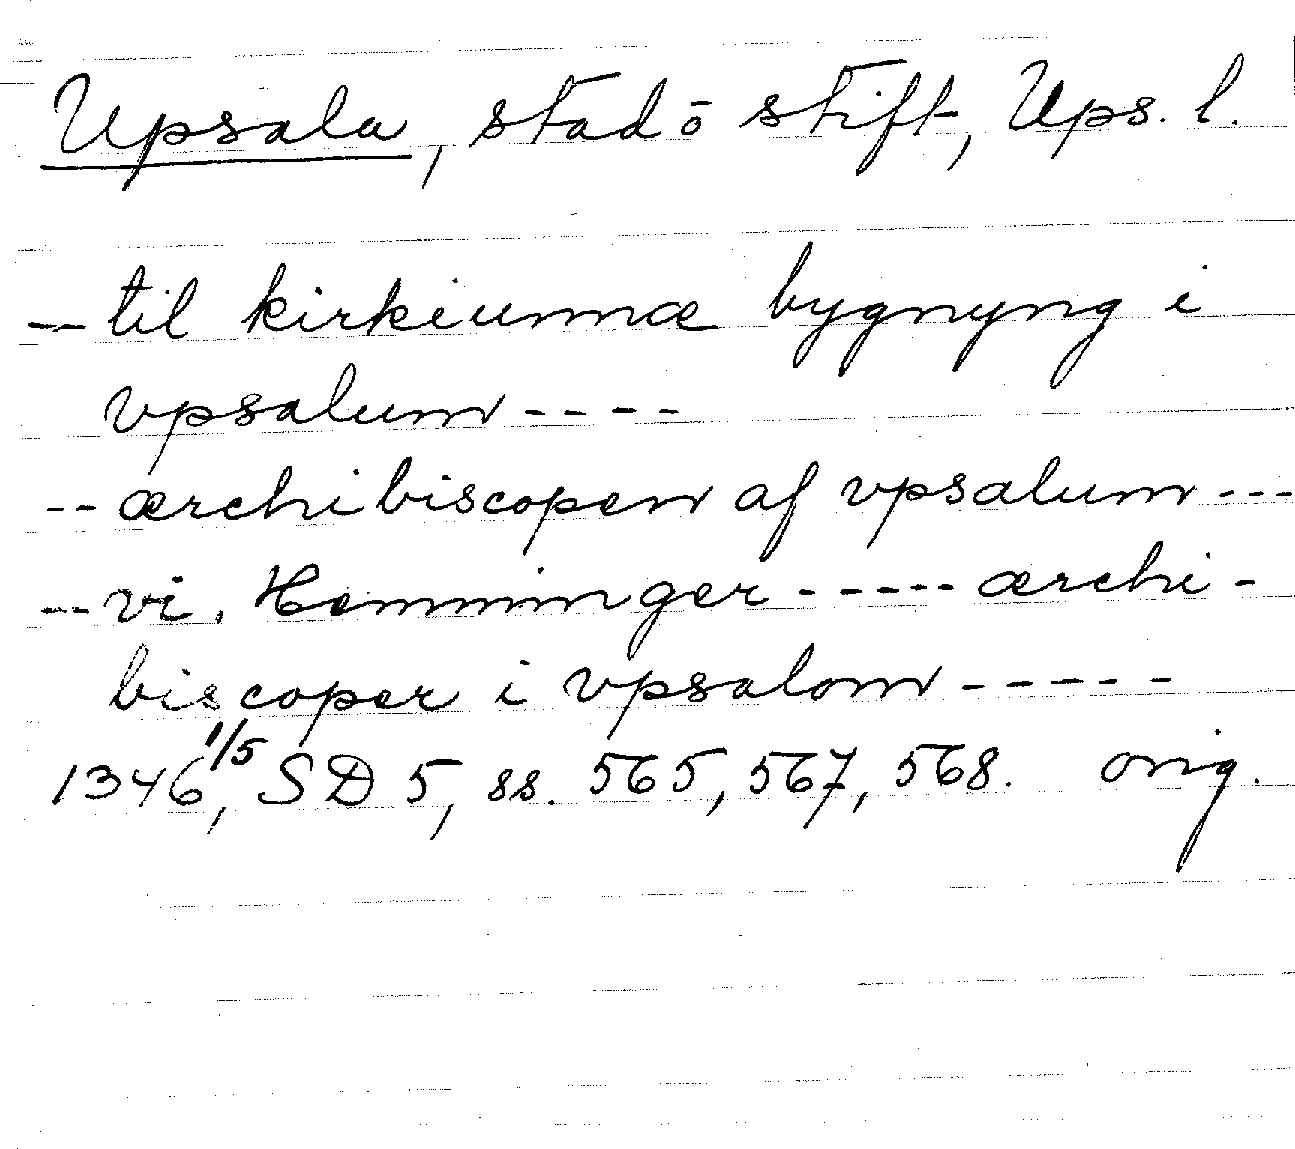 Upsala, stad ō stift, Ups. l.
-- til kirkiunnæ bygnyng i
vpsalum ----
-- ærchibiscopen af vpsalum ---
-- vi, Hemminger ----- ærchi-
biscoper i vpsalom -----
1346 1/5, SD 5, ss. 565, 567, 568. orig.